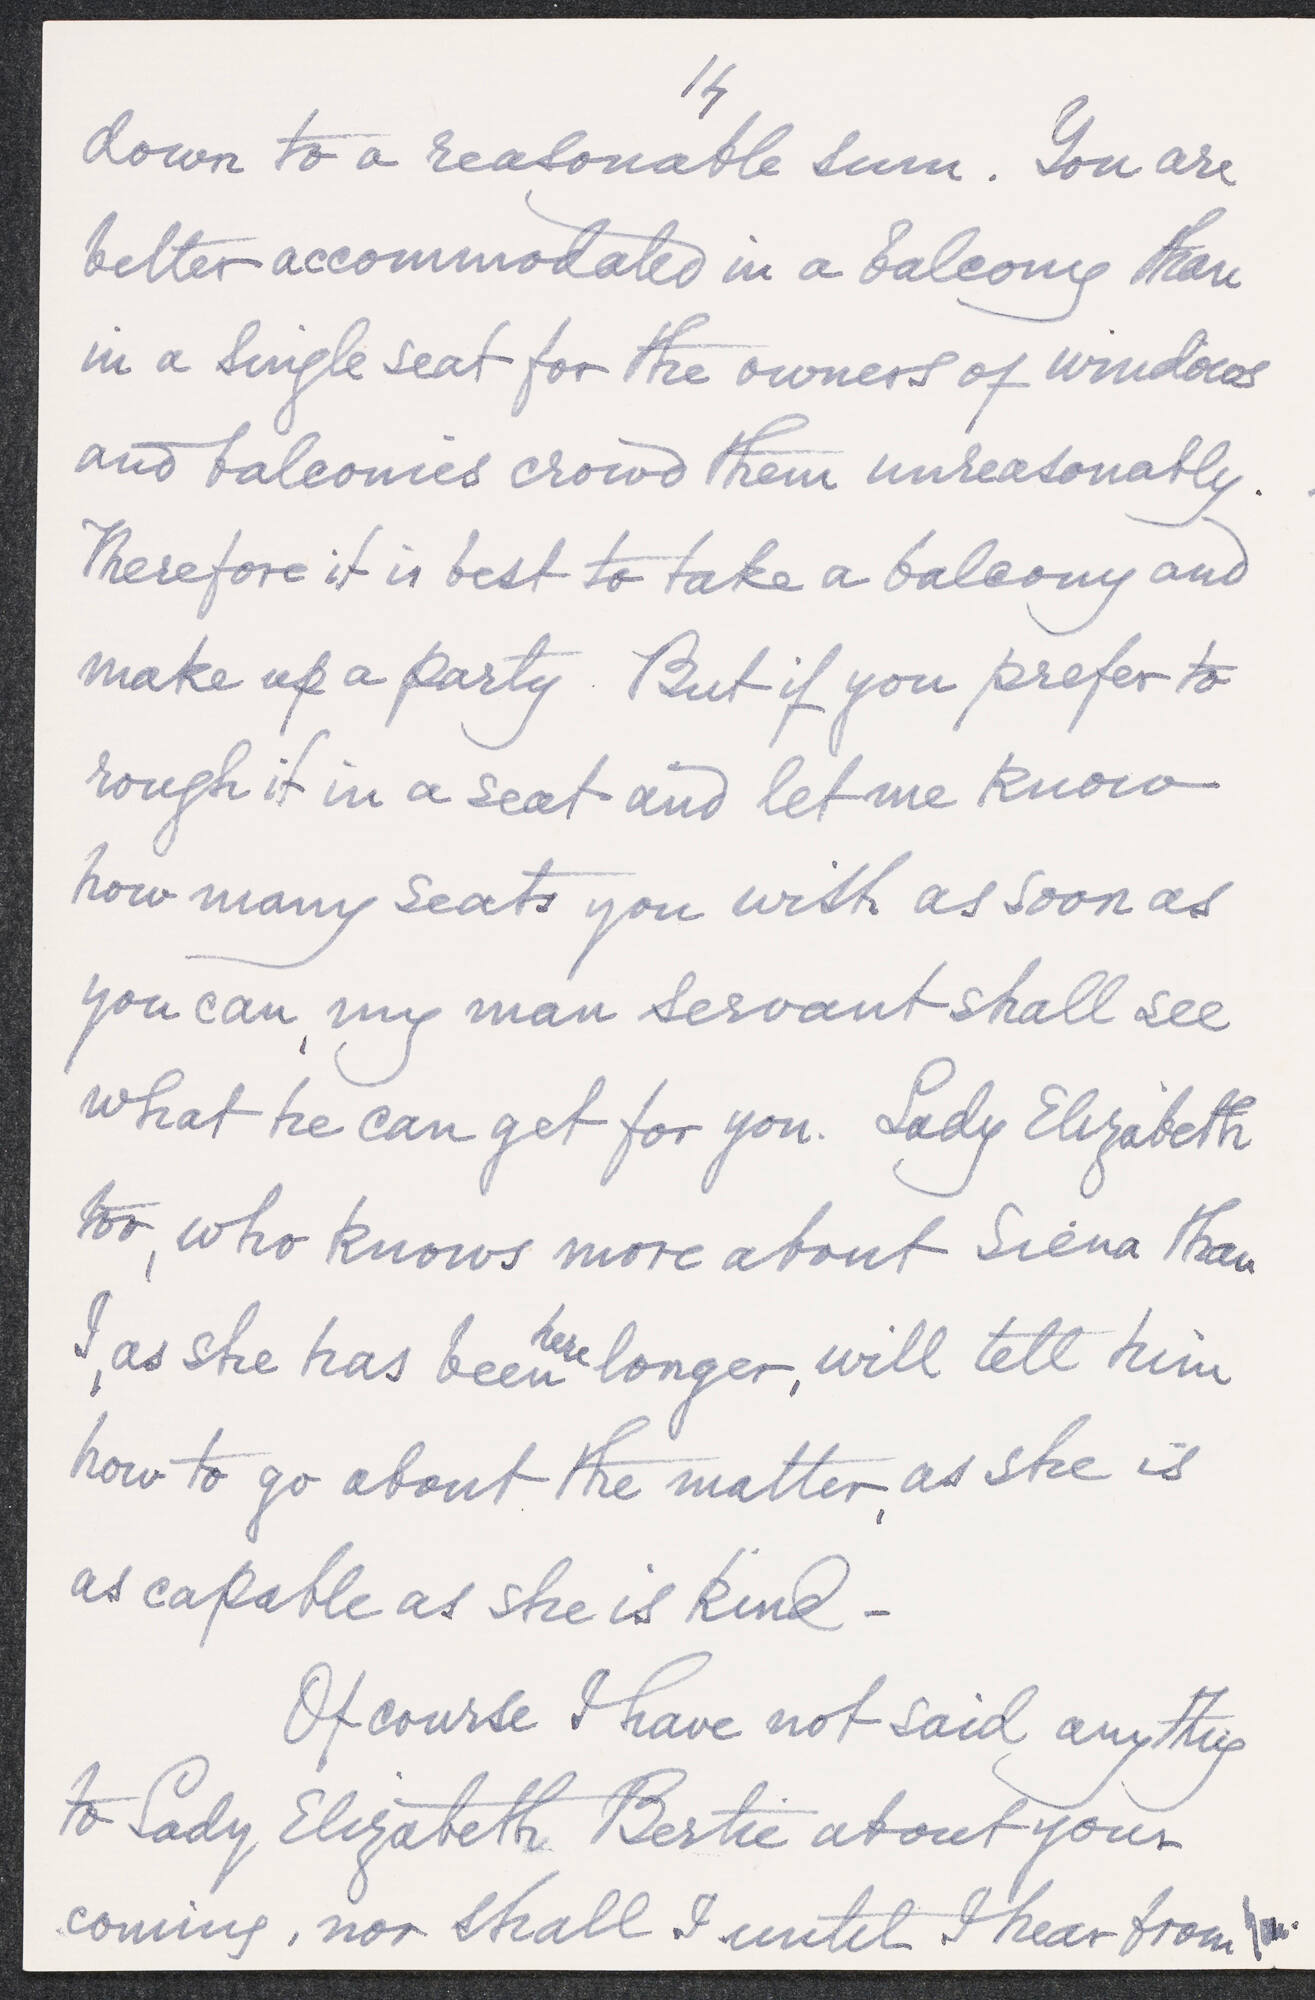 14
down to a reasonable sum. You are
better accommodated in a balcony than
in a single seat for the owners of windows
and balconies crowd them unreasonably.
Therefore it is best to take a balcony and
make up a party. But if you prefer to
rough it in a seat and let me know
how many seats you wish as soon as
you can, my man servant shall see
what he can get for you. Lady Elizabeth
too, who knows more about Siena than
I, as she has been here longer, will tell him
how to go about the matter, as she is
as capable as she is kind -
Of course I have not said anything
to Lady Elizabeth Bertie about your
coming, nor shall I until I hear from you.